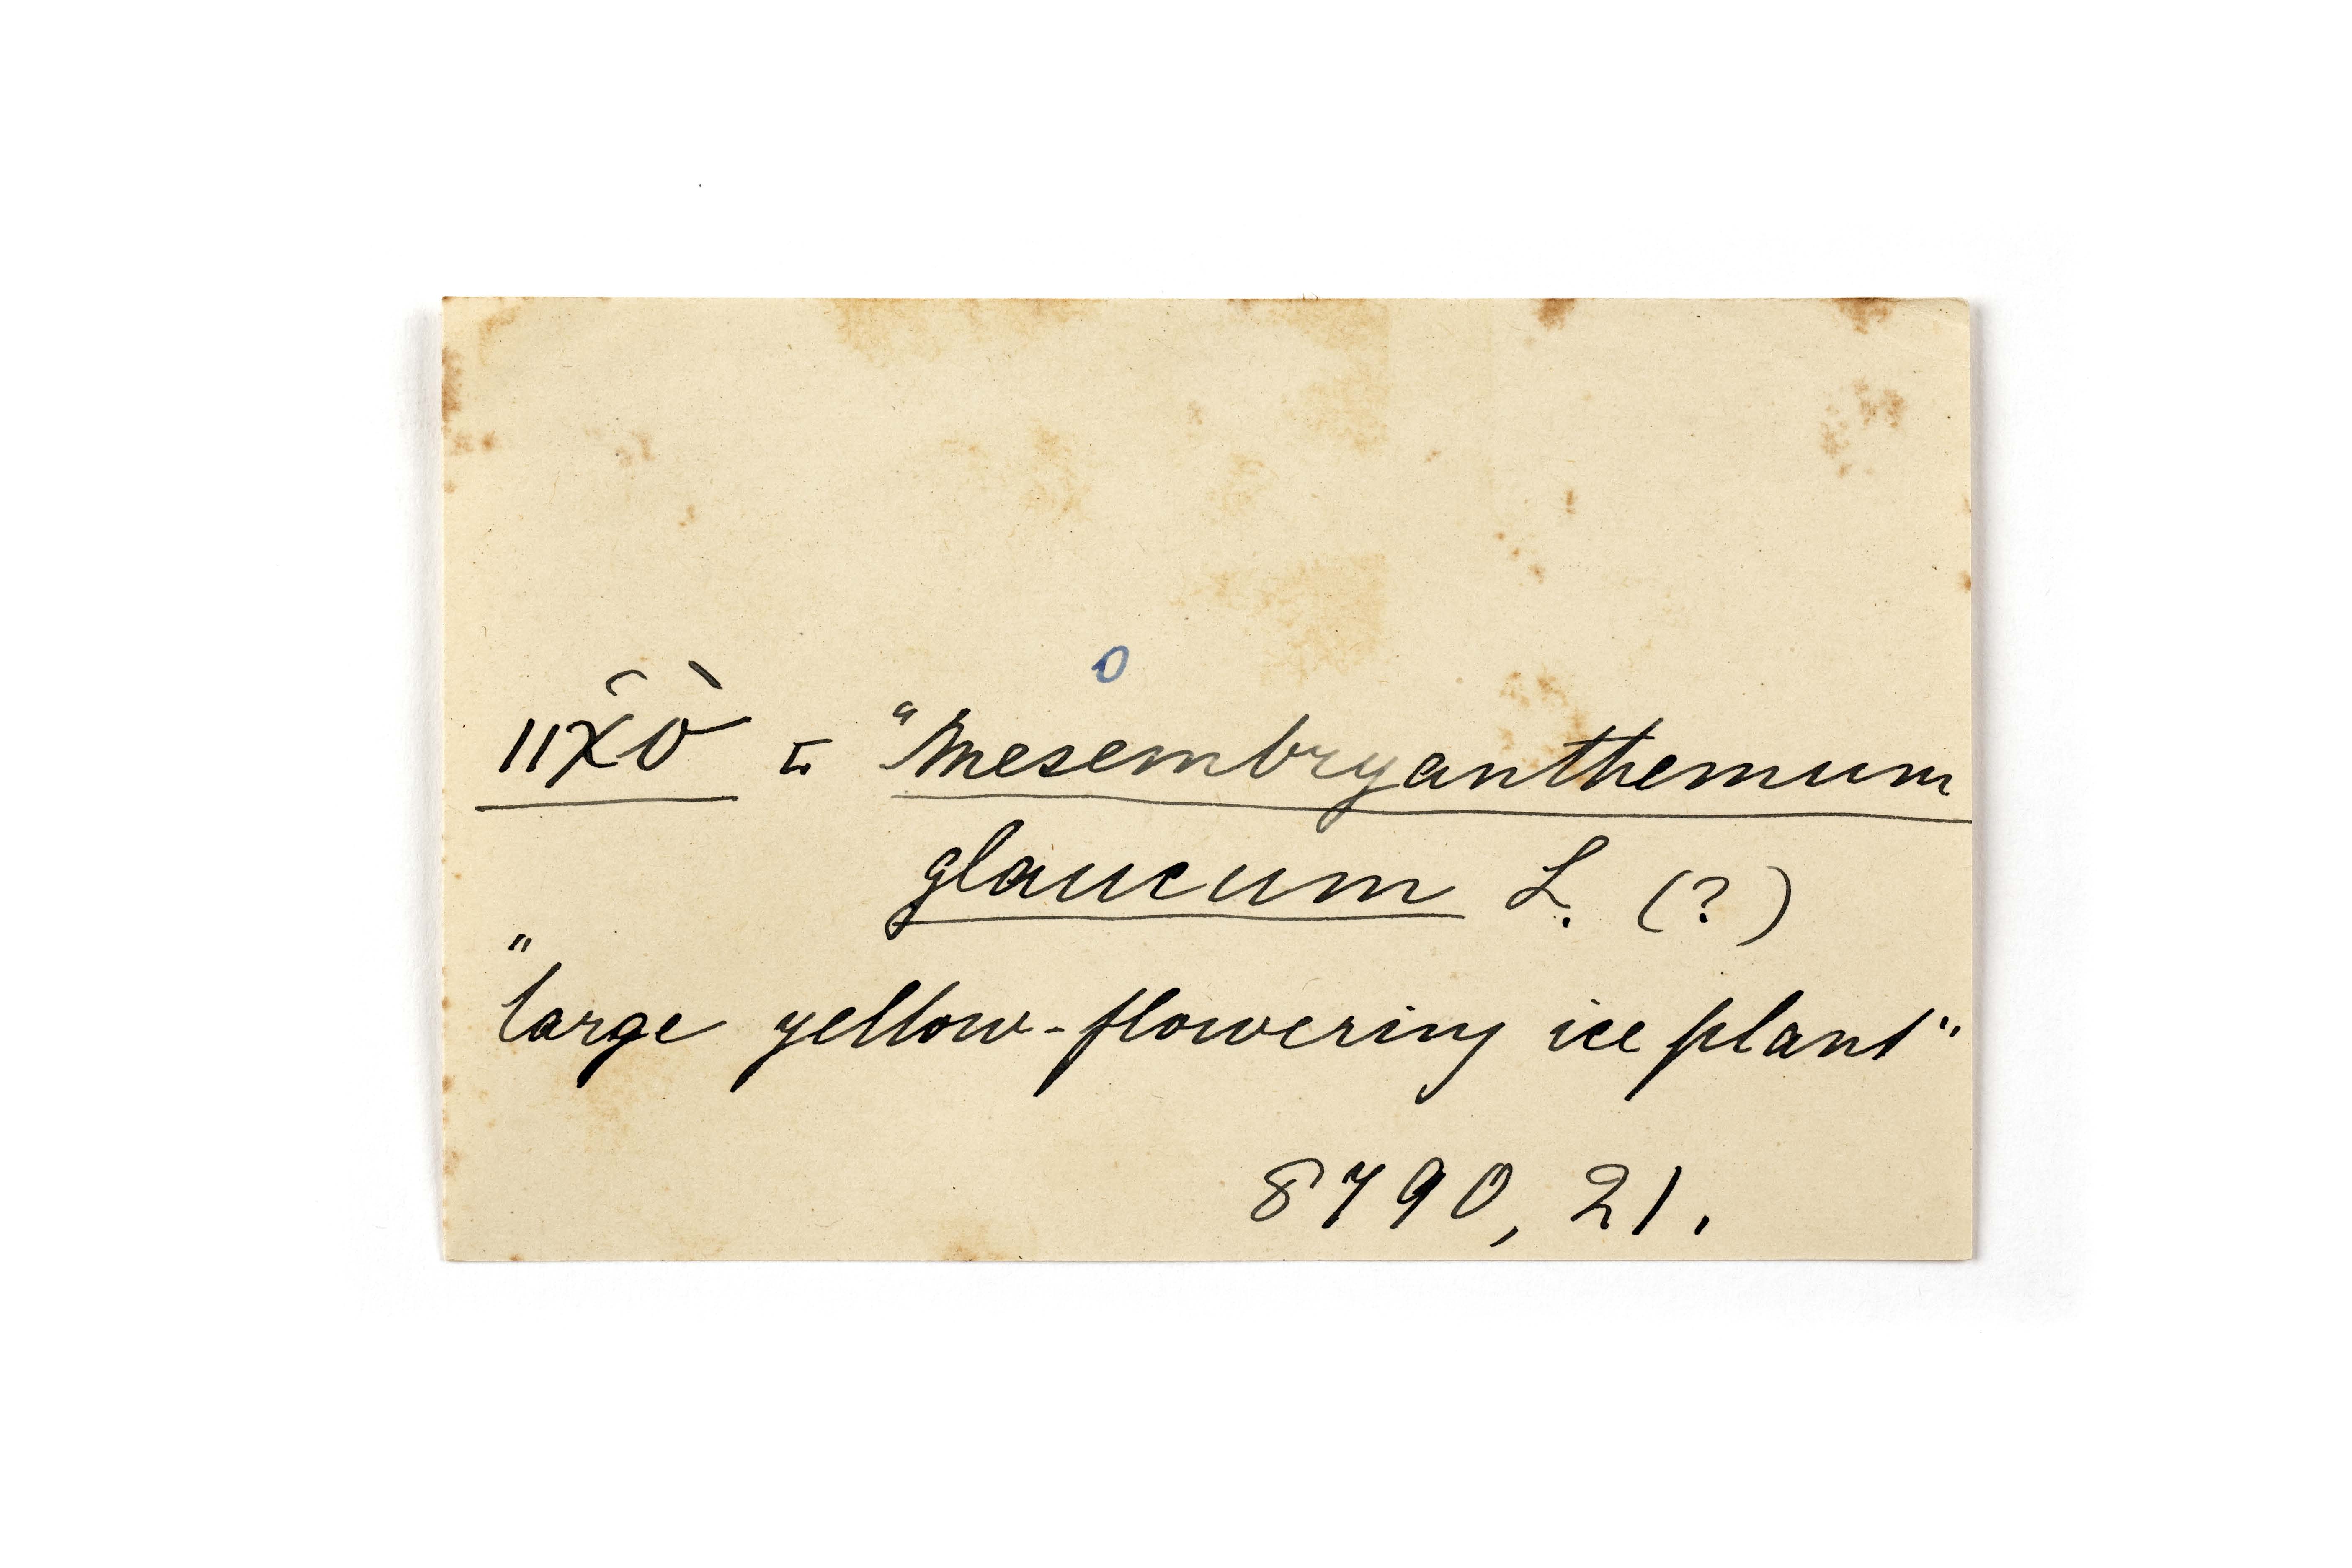 o
ǁχ̑ò = "Mesembryanthemum
glaucum L. (?)
"large yellow-flowering ice plant"
8790, 21.